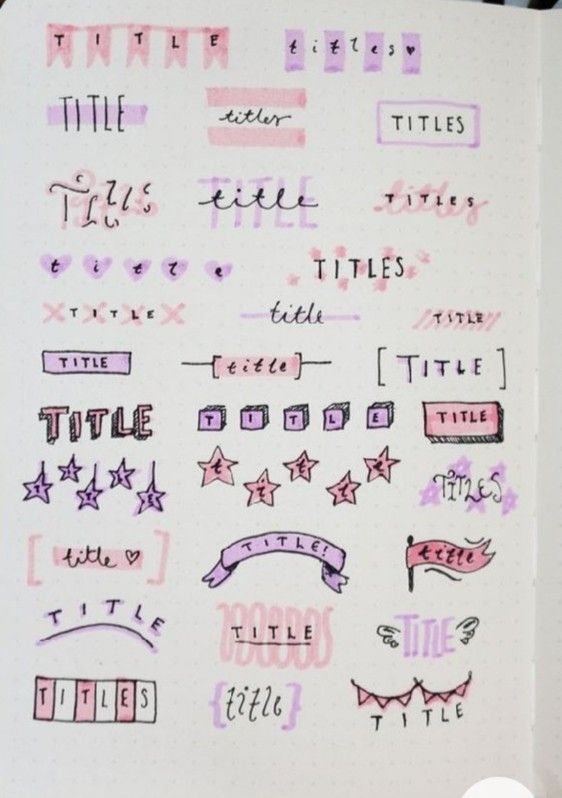 T I T L E
t i t l e s ♥
TITLE
titles
TITLES
TITLE
TITLE
title
titles
TITLES
t i t l e
TITLES
T I T L E
title
TITLE
TITLE
[title]
[TITLE]
TITLE
T I T L E
TITLE
T I T L E
t i t l e
TITLES
[title ♡]
TITLE!
title
T I T L E
TITLE
TITLE
TITLES
{title}
T I T L E